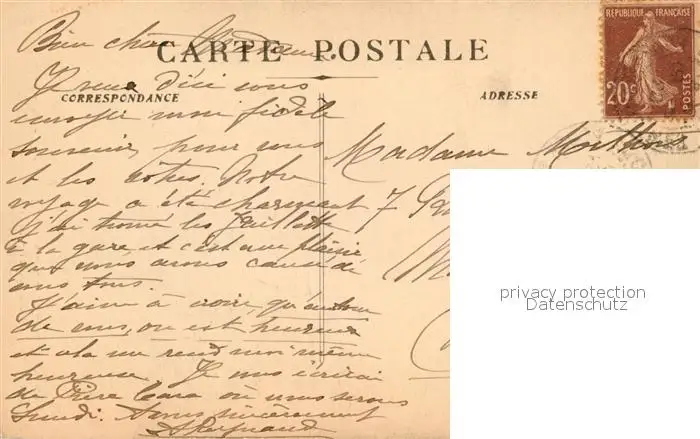 Bien chère Madame.
CARTE POSTALE
CORRESPONDANCE
ADRESSE
REPUBLIQUE FRANÇAISE
20c
POSTES
Je veux d'ici vous
envoyer mon fidèle
souvenir, pour vous
et les vôtres. Notre
voyage a été charmant
J'ai trouvé les
à la gare, et c'est avec plaisir
que nous avons causé de
vous tous.
J'aime à croire, qu'autour
de vous, on est heureux
et cela me rend moi même
heureuse. Je vous écrirai
de où nous serons
Lundi. A vous sincèrement
Madame
7
privacy protection
Datenschutz